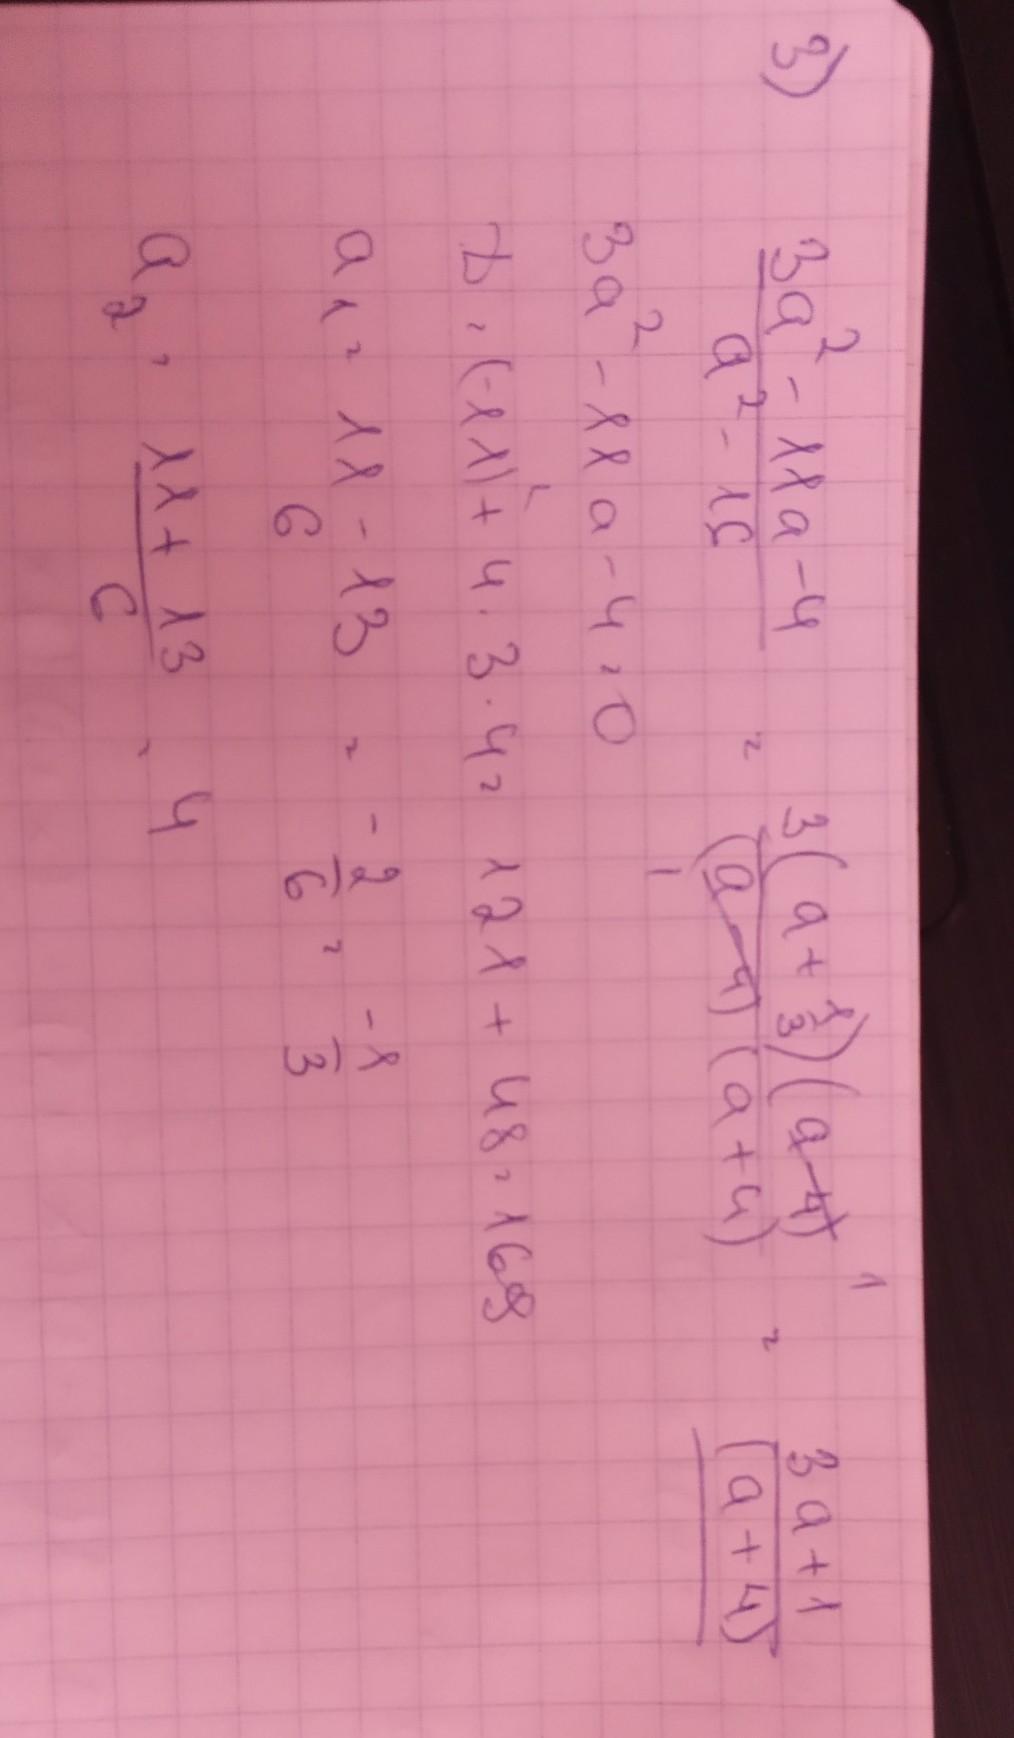 3) (3a² - 11a - 4)/(a² - 16) = (3(a + 1/3)(a - 4) 1)/((a - 4)(a + 4) 1) = (3a + 1)/((a + 4))
3a² - 11a - 4 = 0
D = (-11)² + 4 · 3 · 4 = 121 + 48 = 169
a₁ = (11 - 13)/6 = -2/6 = -1/3
a₂ = (11 + 13)/6 = 4